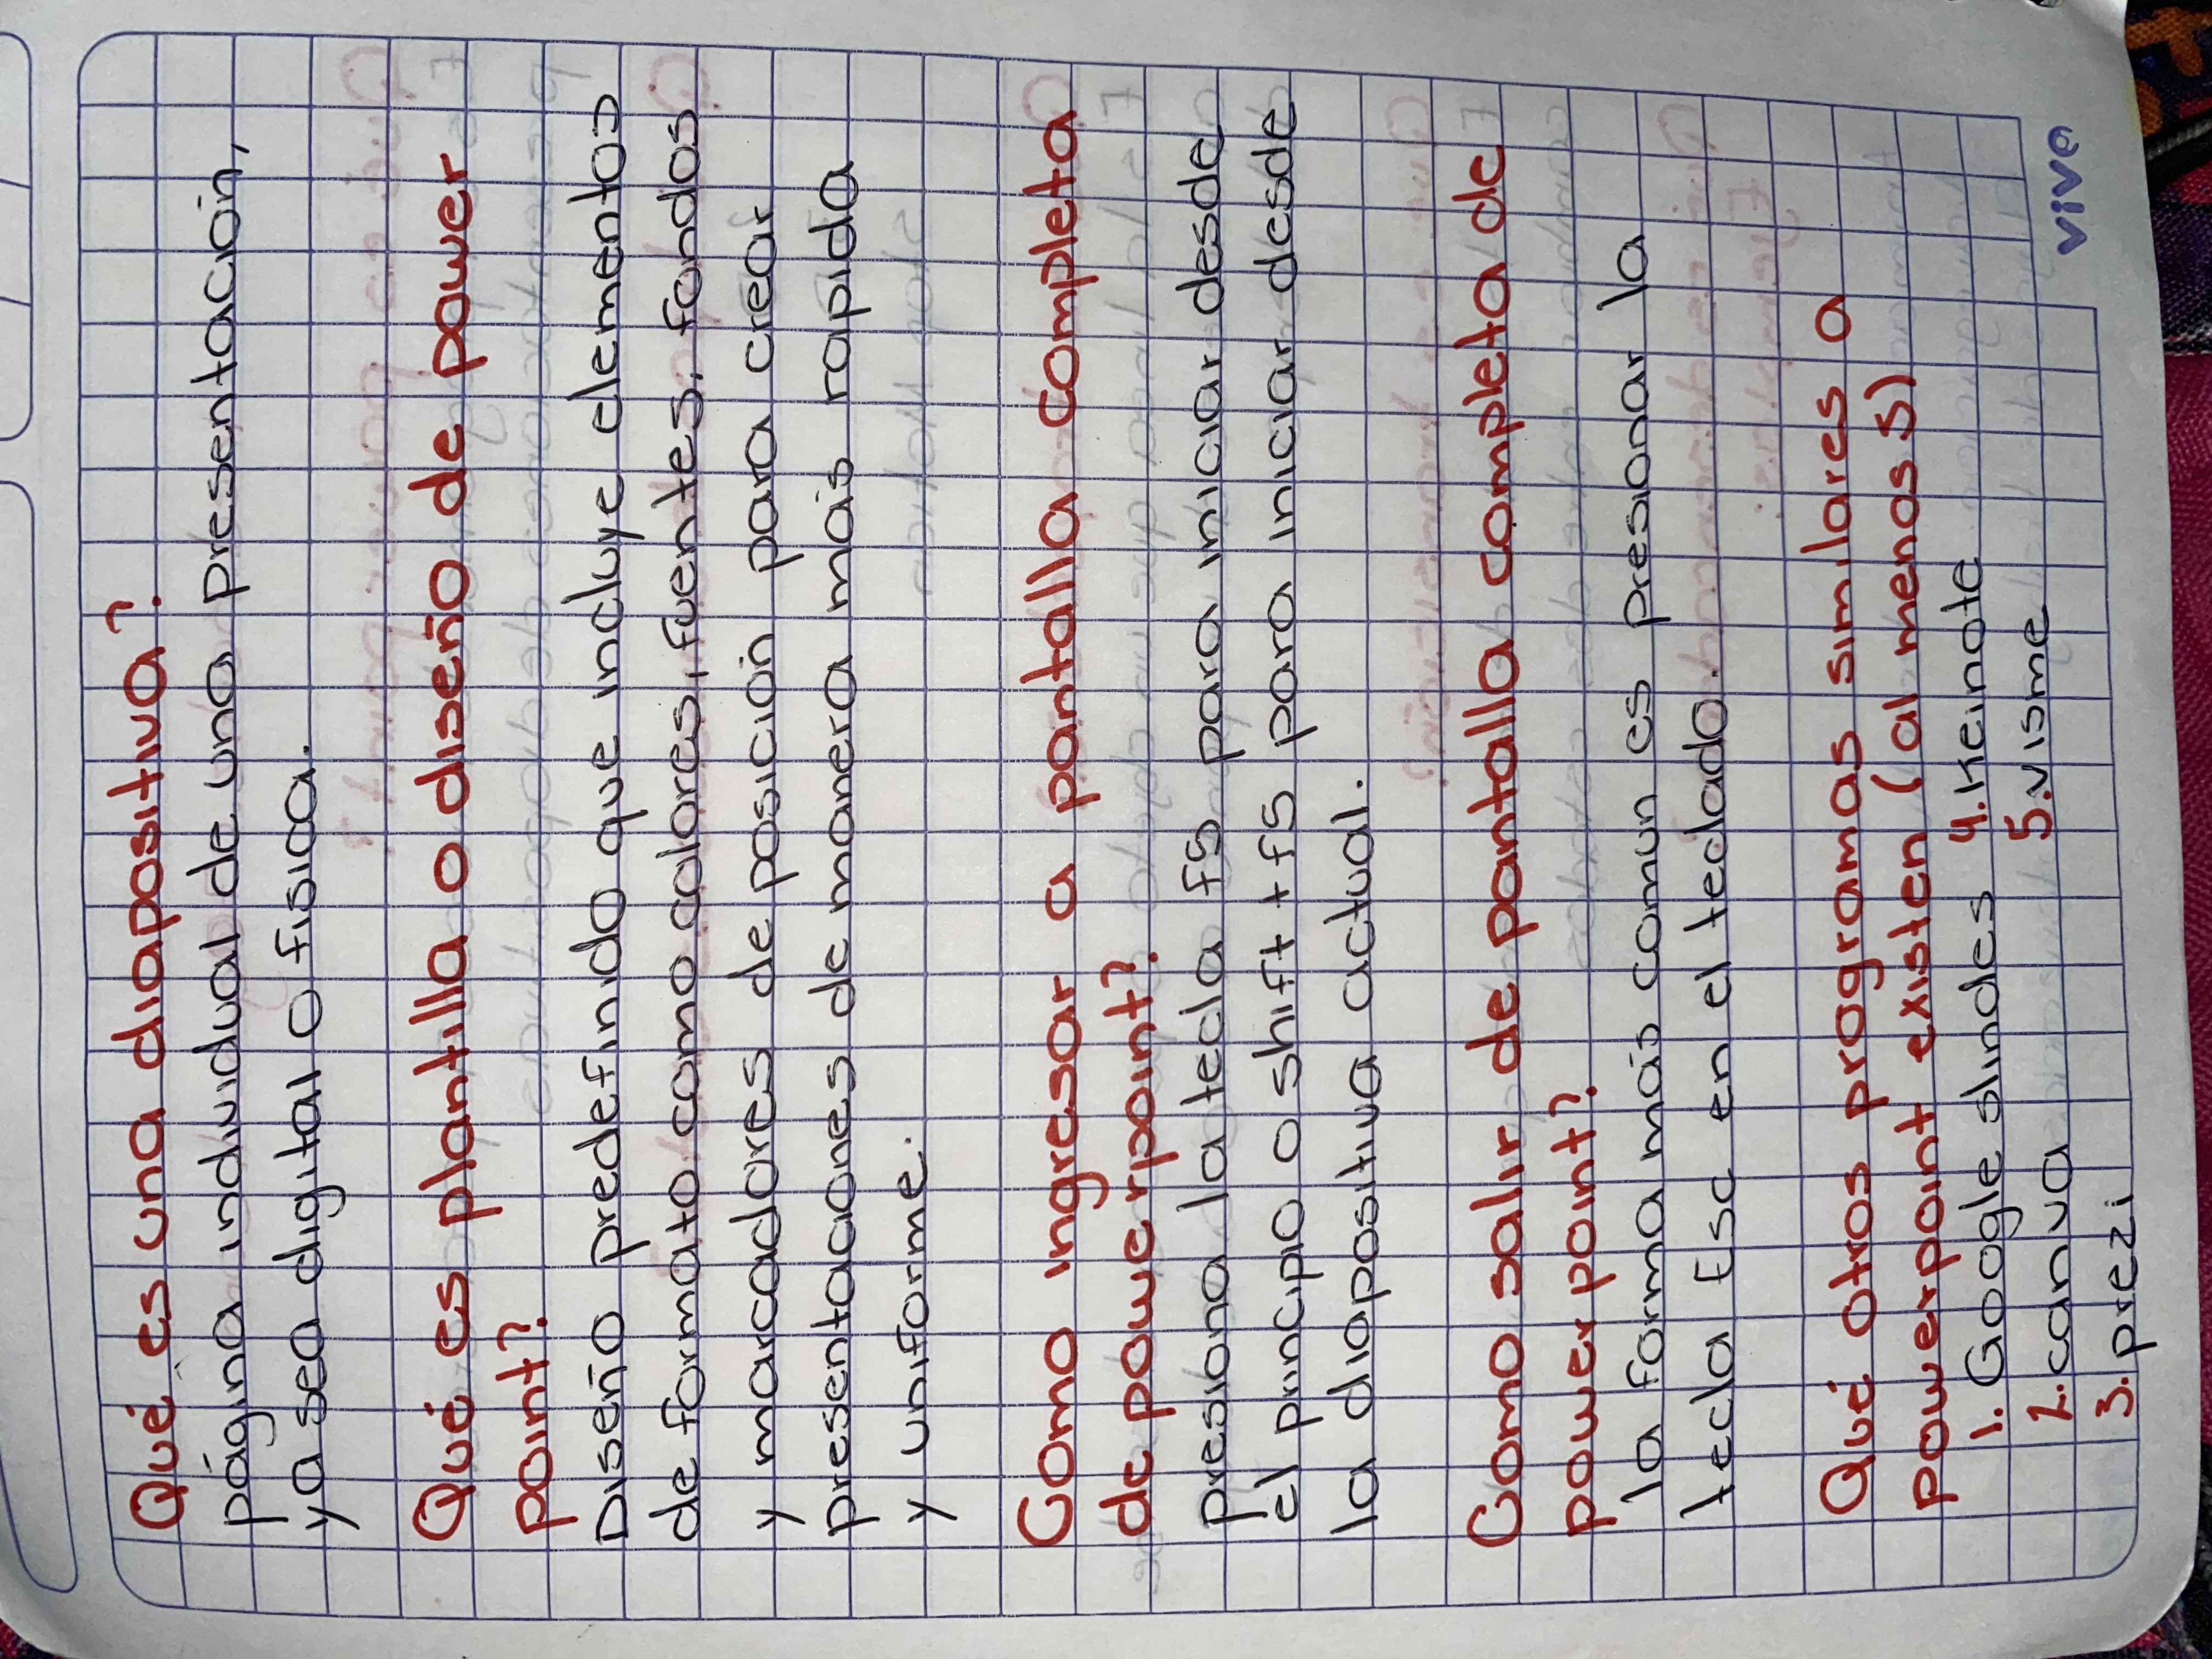 Qué es una diapositiva?
página individual de una presentación,
ya sea digital o fisica.
Qué es plantilla o diseño de power
point?
Diseño predefinido que incluye elementos
de formato como colores, fuentes, fondos
y marcadores de posición para crear
presentaciones de manera más rapida
y uniforme.
Como ingresar a pantalla completa
de power point?
presiona la tecla f5 para iniciar desde
el principio o shift + f5 para iniciar desde
la diapositiva actual.
Como salir de pantalla completa de
power point?
la forma más comun es presionar la
tecla Esc en el teclado.
Qué otros programas similares a
powerpoint existen (al menos 5)
1. Google slindes 4. Keinote
2. canva 5. visme
3. prezi
vivo